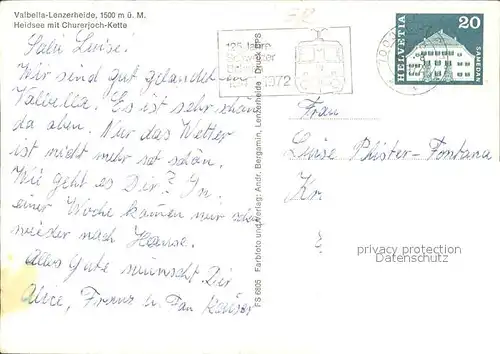 Valbella-Lenzerheide, 1500 m ü. M.
Heidsee mit Churerjoch-Kette
Salü Luise!
Wir sind gut gelandet in
Valbella. Es ist sehr schön
da oben. Nur das Wetter
ist nicht mehr so schön.
Wie geht es Dir? In
einer Woche kommen wir schon
wieder nach Hause.
Alles Gute wünscht Dir
Alice, Franz u. Fam Kaiser
FS 6805 Farbfoto und Verlag: Andr. Bergamin, Lenzerheide Druck: FPS
125 Jahre
1972
HELVETIA
20
SAMEDAN
Frau
Luise Pfister-Fontana
privacy protection
Datenschutz